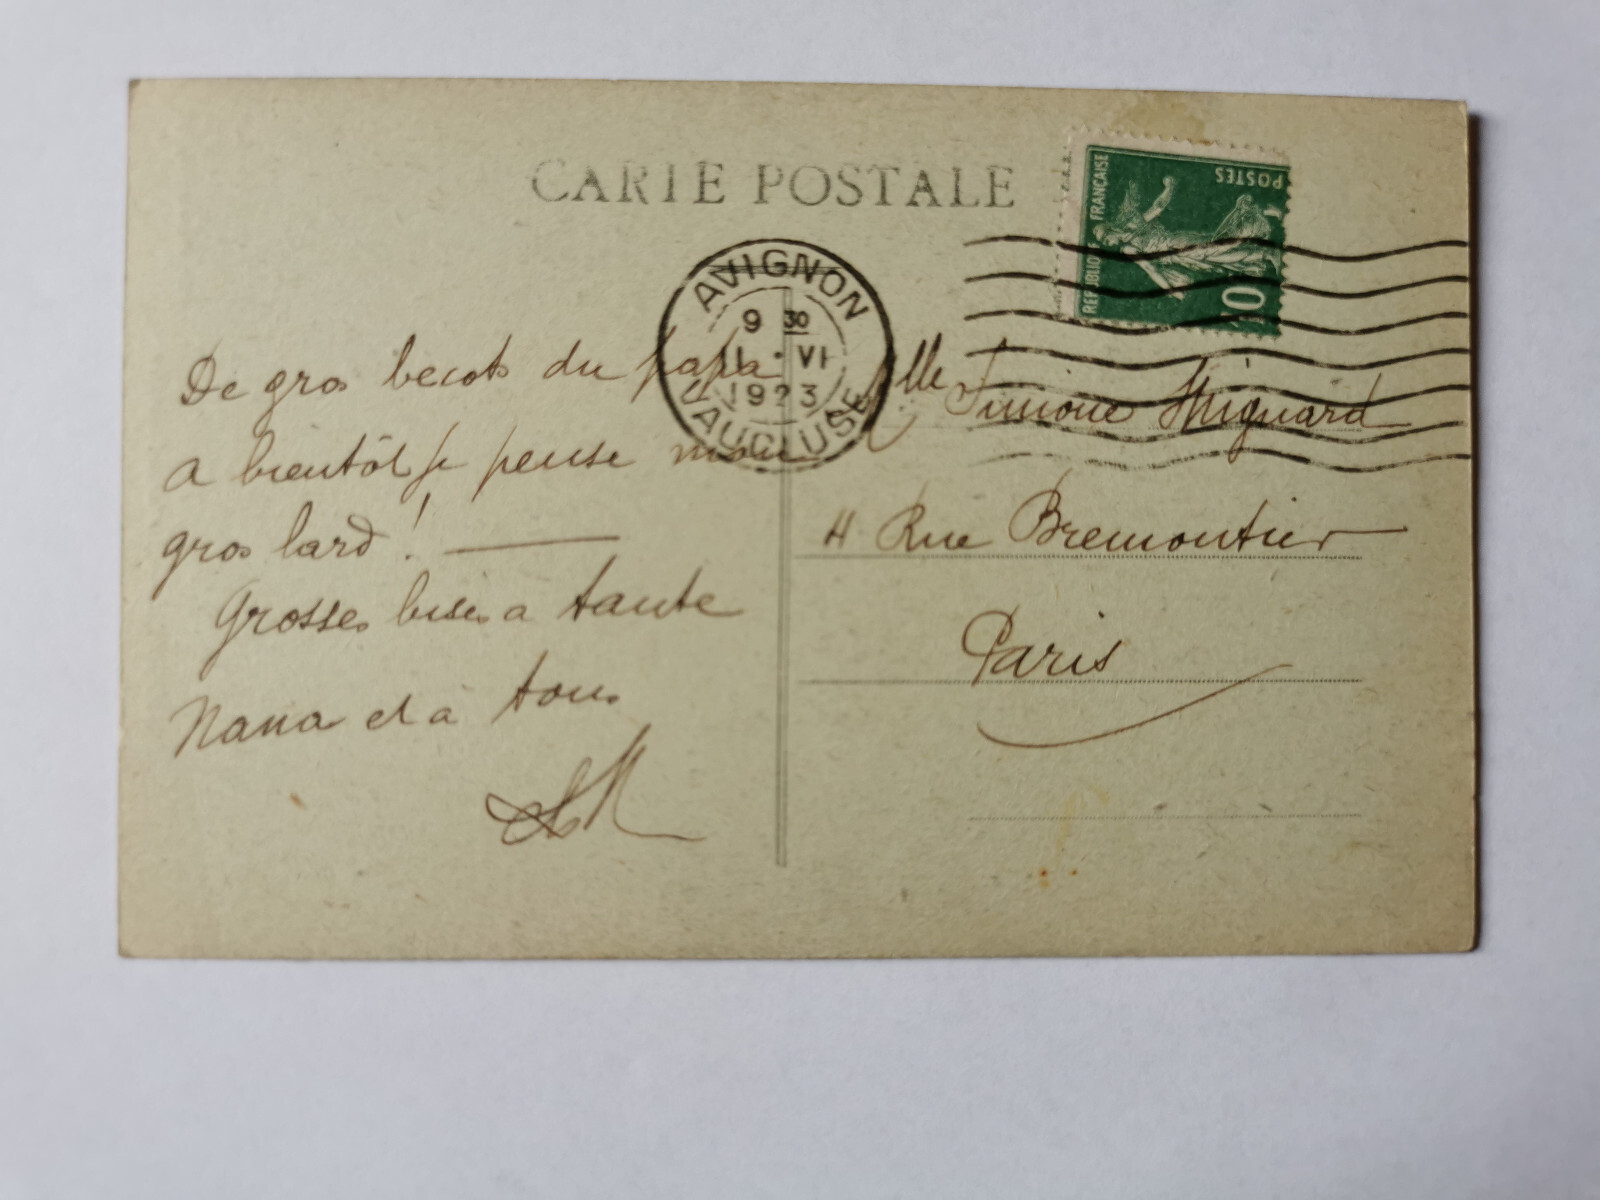 CARTE POSTALE
RÉPUBLIQUE FRANÇAISE
POSTES
10
AVIGNON
9 30
11 • VI
1923
VAUCLUSE
De gros becots du papa
a bientôt je pense mon
gros lard !
Grosses bises a tante
Nana et à tous
Mlle Simone Mignard
4 Rue Bremontier
Paris